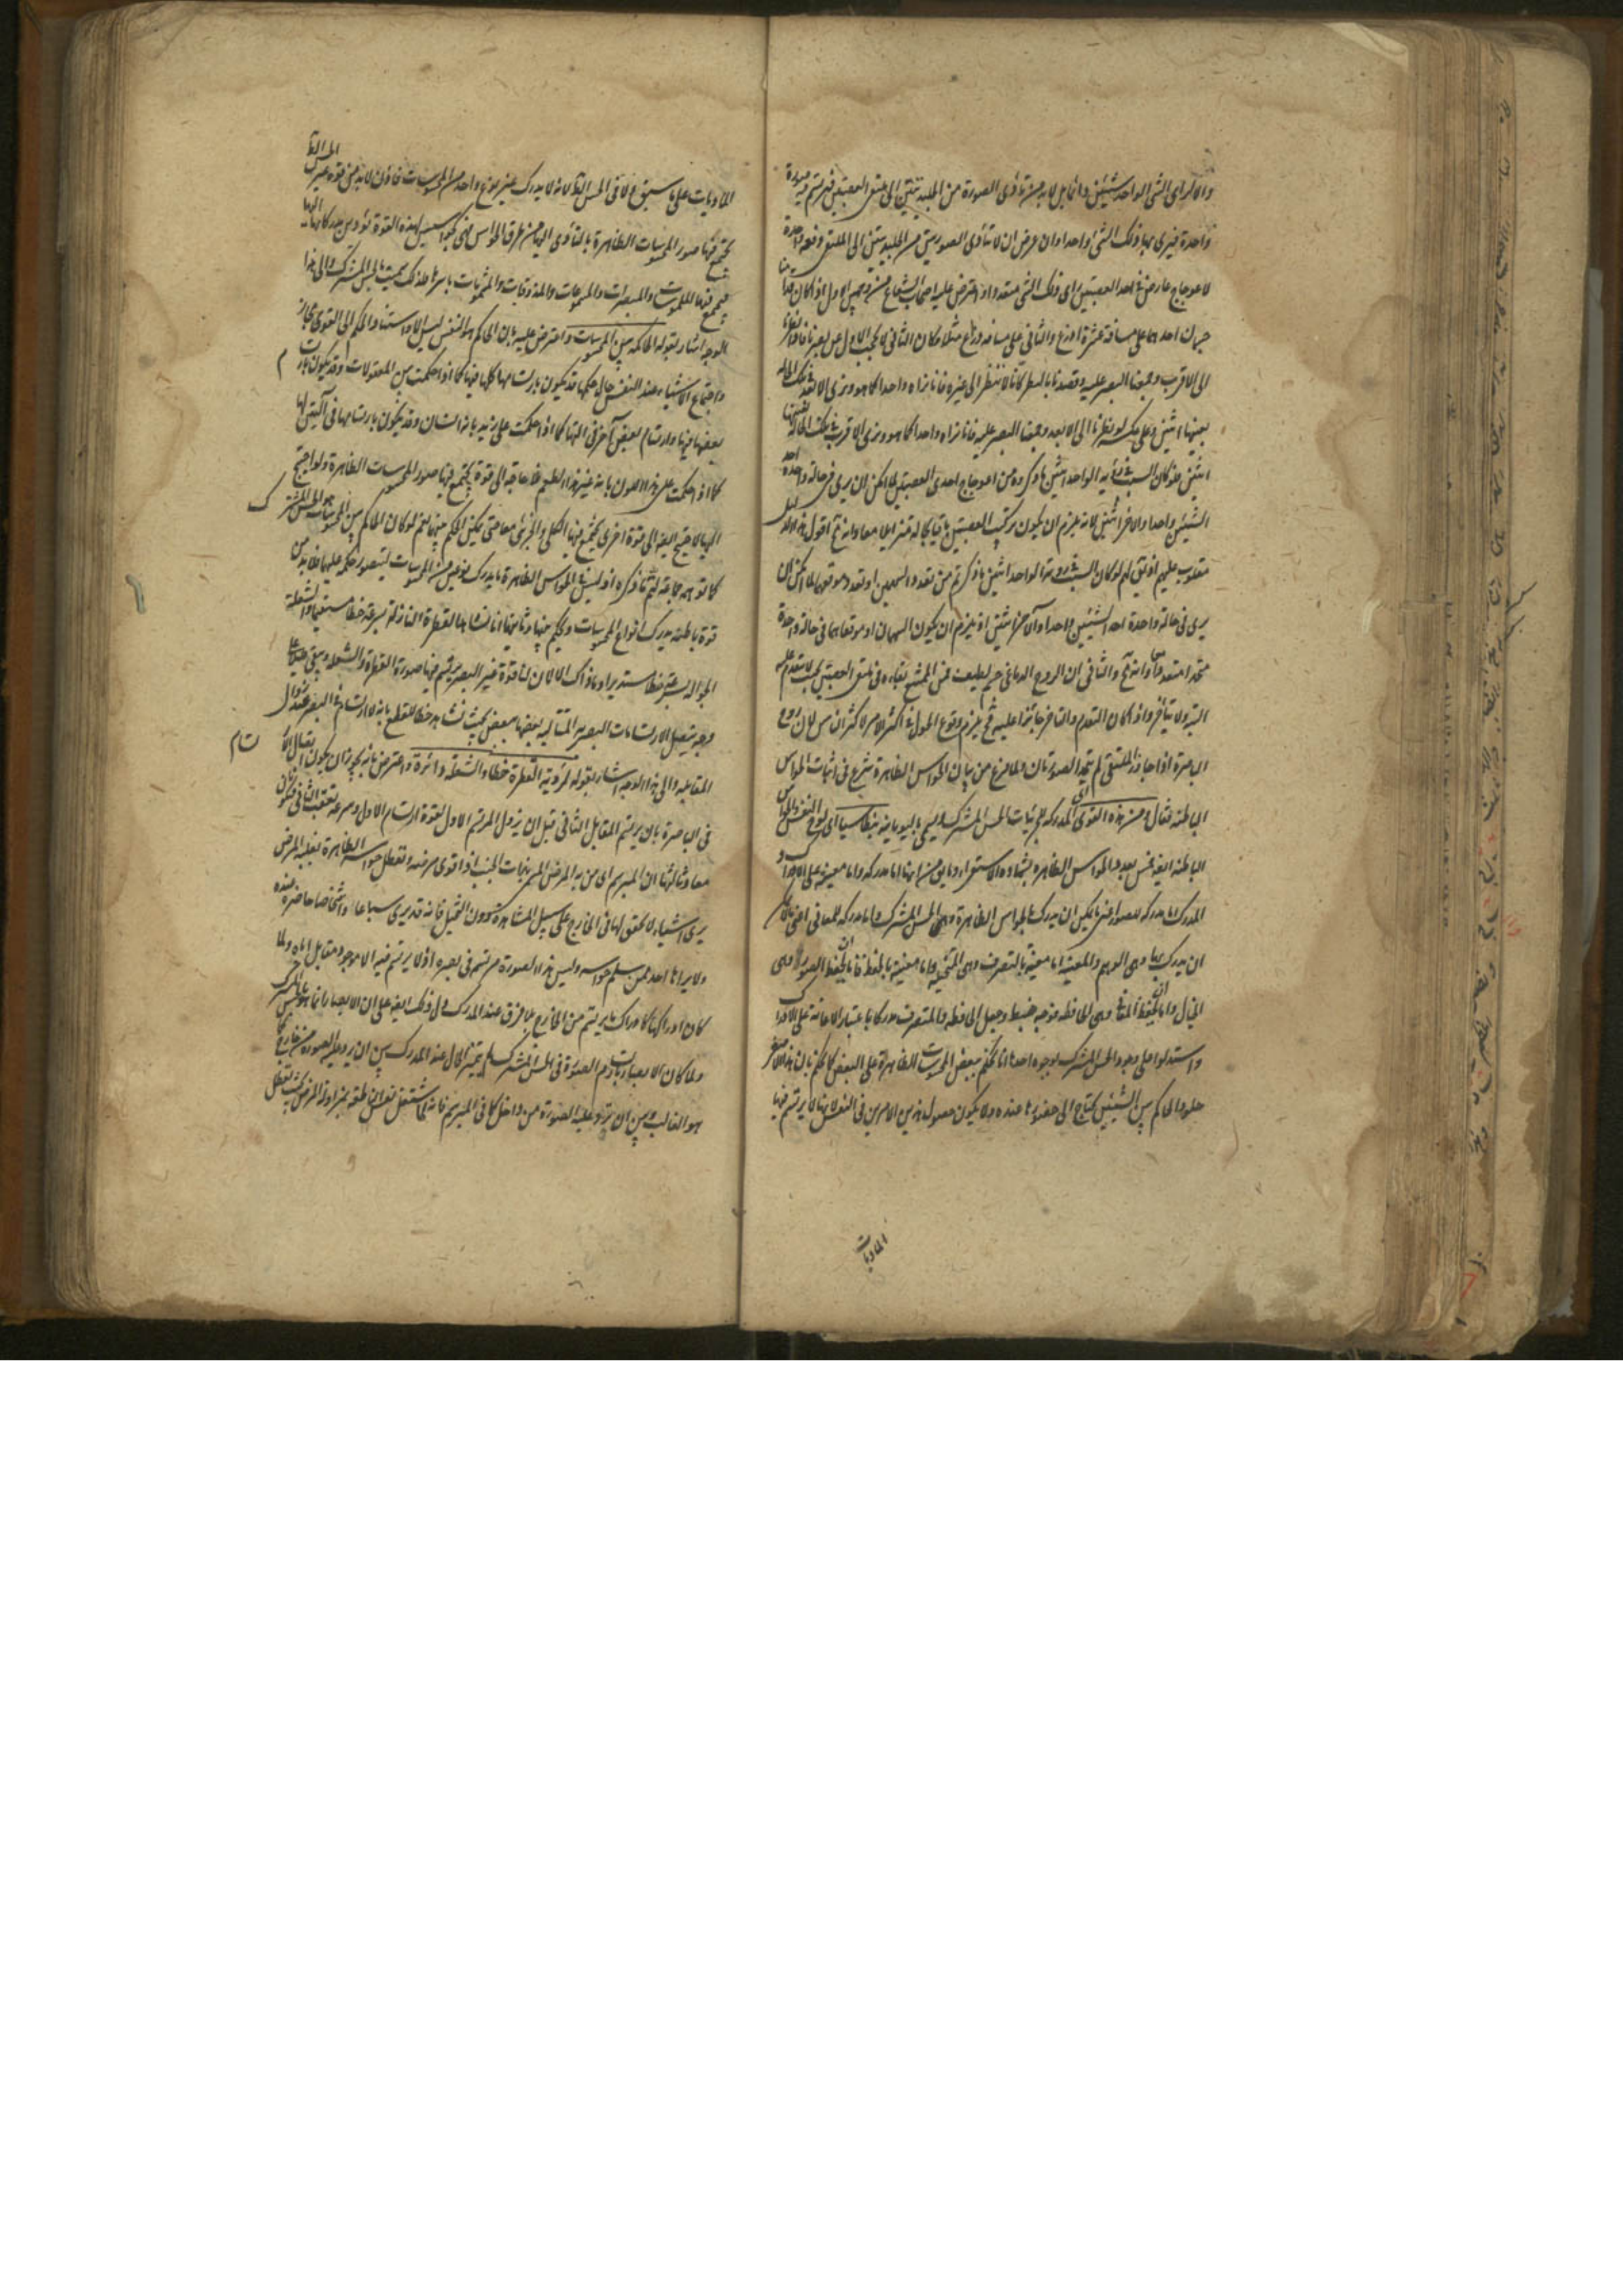 والا لرأى الشئ الواحد شيئين وانما بل لا بد من تأدى الصورة من الجليديتين الى ملتقى العصبتين فيرتسم فيه صورة
واحدة فيرى بها ذلك الشئ واحدا وان عرض ان لا تتأدى الصورتين من الجليديتين الى الملتقى دفعة واحدة
لاعوجاج عارض فى احد العصبتين رأى ذلك الشئ متعددا واعترض عليه اصحاب الشعاع من وجهين الاول اذا كان
جسمان احدهما على مسافة عشرة اذرع والثانى على مسافة ذراع مثلا وكان الثانى لا يحجب الاول عن بصرنا فاذا نظرنا
الى الاقرب وجمعنا البصر عليه وقصدنا بالنظر كانا لا ننظر الى غيره فانا نراه واحدا كما هو ونرى الابعد فى تلك الحالة
بعينها اثنين وعلى عكسه لو نظرنا الى الابعد وجمعنا البصر عليه فانا نراه واحدا كما هو ونرى الاقرب فى تلك الحالة بعينها
اثنين فلو كان السبب فى رؤية الواحد اثنين ما ذكروه من اعوجاج احدى العصبتين لما امكن ان يرى فى حالة واحدة احد
الشيئين واحدا والاخر اثنين لانه يلزم ان يكون تركيب العصبتين باقيا بحاله متزايلا معا وانه مح اقول هذا الدليل
مقلوب عليهم اذ نقول لهم لو كان السبب فى رؤية الواحد اثنين ما ذكرتم من تعدد السهمين او تعدد موقعهما لما امكن ان
يرى فى حالة واحدة احد الشيئين واحدا والآخر اثنين اذ يلزم ان يكون السهمان او موقعاهما فى حالة واحدة
متحدا متعددا معا وانه مح والثانى ان الروح الدماغى جرم لطيف فمن الممتنع بقاءه فى ملتقى العصبتين بحيث لا يتقدم عليه
البتة ولا يتأخر واذا كان التقدم والتاخر جائزا عليه فح يلزم وقوع الحول فى اكثر الامر لاكثر الناس لان روح
الباصرة اذا جاوز الملتقى لم تتحد الصورتان ولما فرغ من بيان الحواس الظاهرة شرع فى اثبات الحواس
الباطنة فقال ومن هذه القوى اى المدركة للجزئيات الحس المشترك ويسمى باليونانية بنطاسيا اى لوح النفس والحواس
الباطنة ايضا خمس بعدد الحواس الظاهرة بشهادة الاستقراء وما يق من انها اما مدركة واما معينة على الادراك و
المدركة اما مدركة للصور اعنى ما يمكن ان يدرك بالحواس الظاهرة وهى الحس المشترك واما مدركة للمعانى اعنى ما لا يمكن
ان يدرك بها وهى الوهم والمعينة اما معينة بالتصرف وهى المتخيلة واما معينة بالحفظ فاما ان يحفظ الصور وهى
الخيال واما ان يحفظ المعانى وهى الحافظة فوجه ضبط وجعل الحافظة والمتصرفة مدركا باعتبار الاعانة على الادراك
واستدلوا على وجود الحس المشترك بوجوه احدها انا نحكم ببعض المحسوسات الظاهرة على البعض كالحكم بان هذا الاصفر
حلو والحاكم بين الشيئين يحتاج الى حضورهما عنده ولا يكون حصول هذين الامرين فى النفس لانها لا يرتسم فيها
الماديات
الماديات على ما سبق ولا فى الحس الظاهر لانه لا يدرك غير نوع واحد من المحسوسات فاذن لا بد من قوة غير الحس الظاهر
يجتمع فيها صور المحسوسات الظاهرة بالتأدى اليها من طرق الحواس فهى كجواسيس لهذه القوة تؤدى مدركاتها اليها
فيجتمع فيها الملموسات والمبصرات والمسموعات والمذوقات والمشمومات باسرها فلذلك سميت بالحس المشترك والى هذا
الوجه اشار بقوله الحاكمة بين المحسوسات واعترض عليه بان الحاكم هو النفس ليس الا واستناد الحكم الى القوى مجاز
واجتماع الاشياء عند النفس حال حكمها قد يكون بارتسامها كلها فيها كما اذا حكمت بين المعقولات وقد يكون بارتسام
بعضها فيها وارتسام بعض آخر فى آلتها كما اذا حكمت على زيد بانه انسان وقد يكون بارتسامها فى آلتين لها
كما اذا حكمت على هذا اللون بانه غير هذا الطعم فلا حاجة الى قوة يجتمع فيها صور المحسوسات الظاهرة ولو احتيج
اليها لاحتيج ايضا الى قوة اخرى يجتمع فيها الكلى والجزئى معا حتى يمكن الحكم بينهما نعم لو كان الحاكم بين المحسوسات هو الحس المشترك
كما توهمه جماعة لتم ما ذكره اذ ليس فى الحواس الظاهرة ما يدرك نوعين من المحسوسات ليتصور حكمه عليهما فلا بد من
قوة باطنة يدرك انواع المحسوسات ويحكم بينها وثانيها انا نشاهد القطرة النازلة بسرعة خطا مستقيما والشعلة
الجوالة بسرعة خطا مستديرا وما ذاك الا لان لنا قوة غير البصر يرتسم فيها صورة القطرة والشعلة ويبقى قليلا على
وجه يتصل الارتسامات البصرية المتتالية بعضها ببعض بحيث نشاهد خطا للقطع بانه لا ارتسام فى البصر عند زوال
المقابلة والى هذا الوجه اشار بقوله لرؤية القطرة خطا والشعلة دائرة واعترض بانه يجوز ان يكون اتصال الارتسام
فى الباصرة بان يرتسم المقابل الثانى قبل ان يزول المرتسم الاول لقوة ارتسام الاول وسرعة تعقب الثانى فيكونان
معا وثالثها ان المبرسم اى من به المرض المسمى بذات الجنب اذا قوى مرضه وتعطل حواسه الظاهرة بغلبة المرض
يرى اشياء لا تحقق لها فى الخارج على سبيل المشاهدة دون التخيل فانه قد يرى سباعا واشخاصا حاضرة عنده
ولا يراها احد ممن سلم حواسه وليس هذه الصورة مرتسمة فى بصره اذ لا يرتسم فيه الا موجود مقابل اياه ولما
كان ادراكها كادراك ما يرتسم من الخارج بلا فرق عند المدرك دل ذلك ايضا على ان الابصار انما هو بالحس المشترك
ولما كان الابصار بارتسام الصورة فى الحس المشترك لم يتميز الحال عند المدرك بين ان يرد عليه الصورة من خارج كما
هو الغالب وبين ان ترد عليه الصورة من داخل كما فى المبرسم فانه لما اشتغل نفسه الناطقة بمزاولة المرض بحيث تعطل